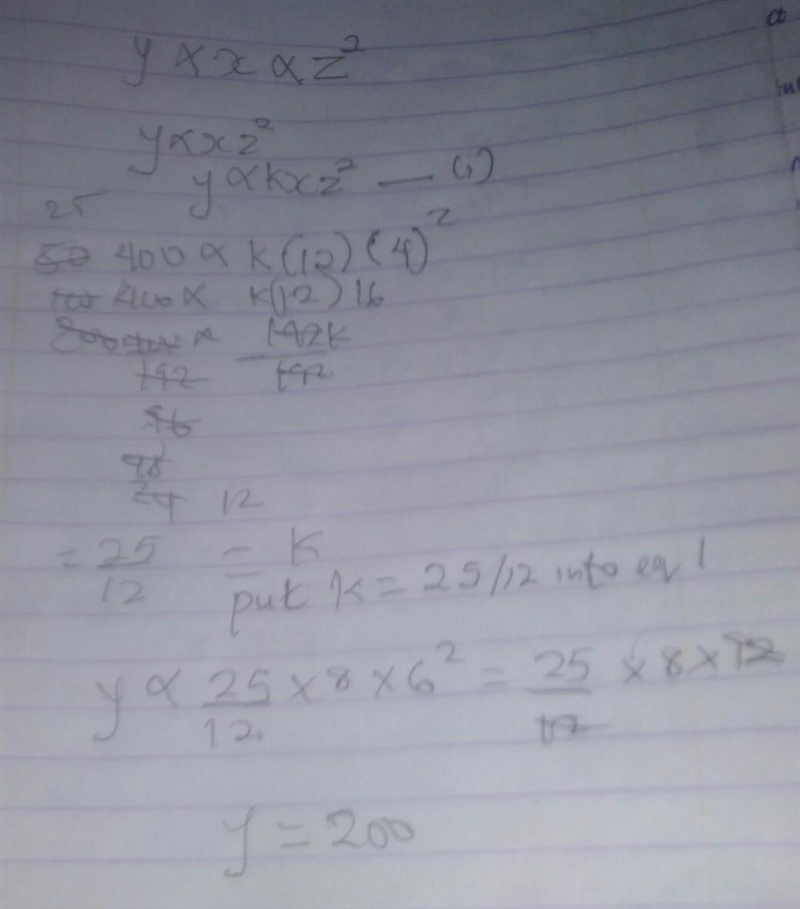 y ∝ x ∝ z²
y ∝ xz²
y ∝ kxz² — (1)
25
50 400 ∝ k(12)(4)²
400 ∝ k(12)16
192k
192 192
96
48
24 12
= 25/12 = k
put k = 25/12 into eq 1
y ∝ 25/12 × 8 × 6² = 25/12 × 8 × 12
y = 200